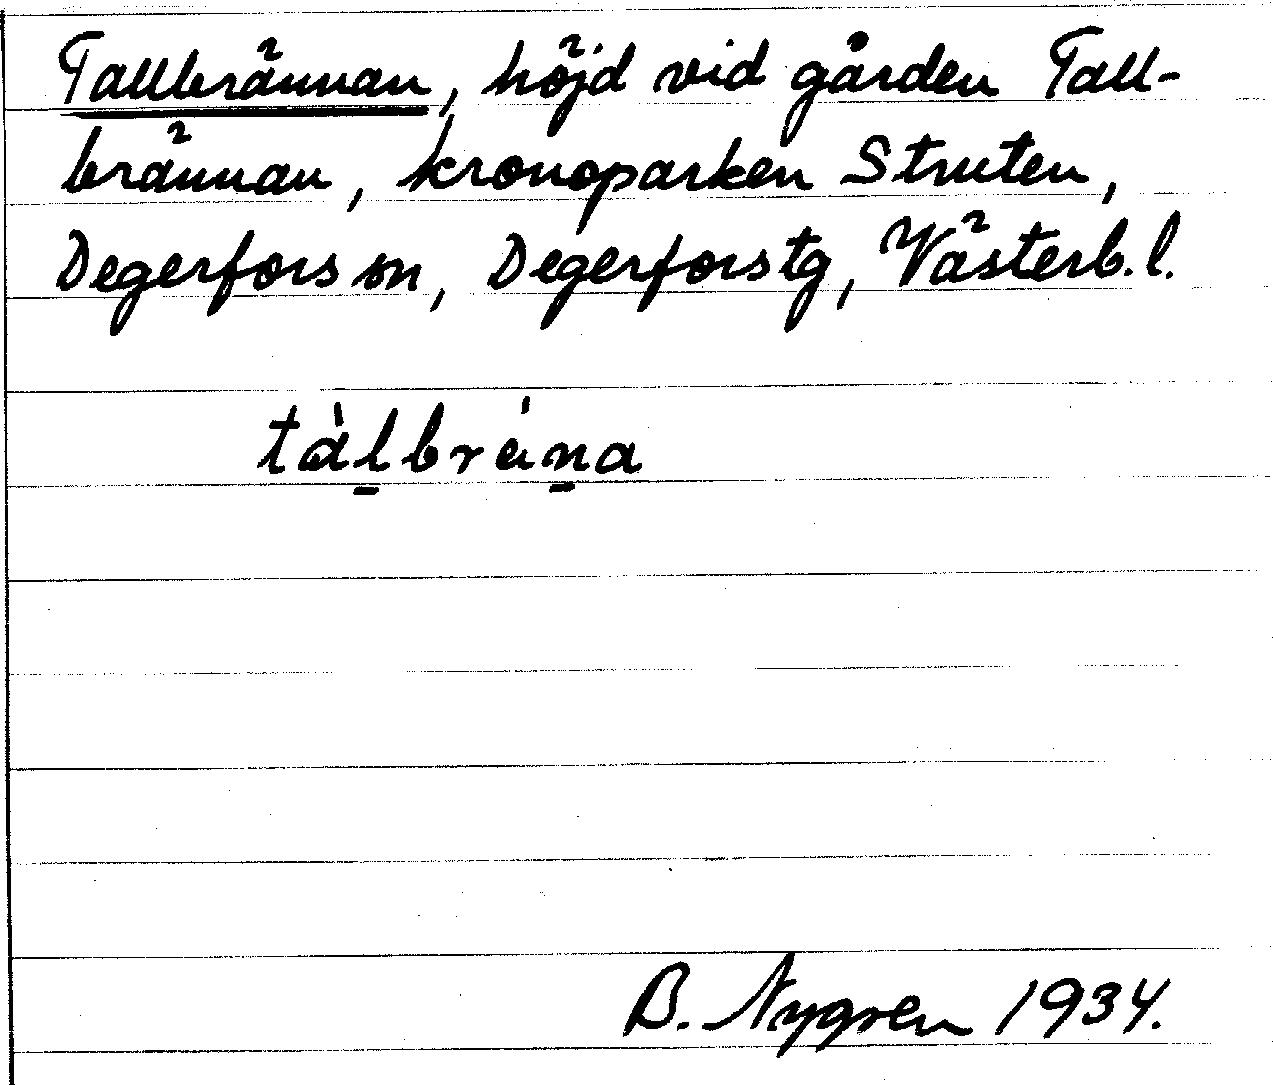 Tallbrännan, höjd vid gården Tall-
brännan, kronoparken Struten,
Degerfors sn, Degerforstg, Västerb. l.
tàl̠brán̠a
B. Nygren 1934.